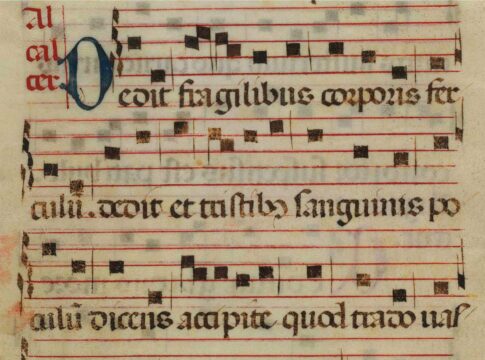 Al
cal
cer
Dedit fragilibus corporis fer
culū. dedit et tristibꝰ sanguinis po
culū dicens accipite quod trado uaſ